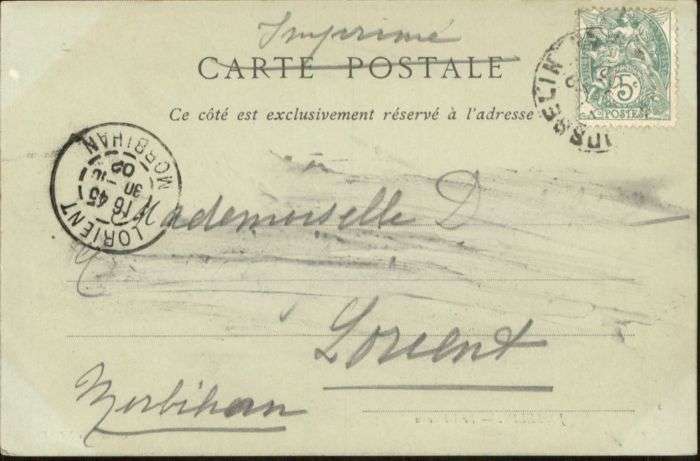 Imprimé
CARTE POSTALE
Ce côté est exclusivement réservé à l'adresse
5c
POSTES
LORIENT
MORBIHAN
16 45
02
Mademoiselle D
Lorient
Morbihan